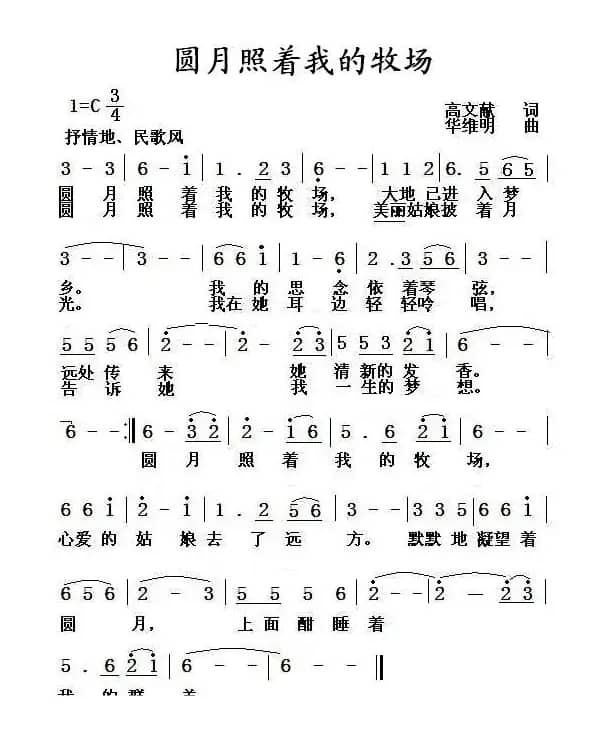 圆月照着我的牧场
1=C 3/4
高文献 词
抒情地、民歌风
华维明 曲
3 - 3 | 6 - i | 1 . 2 3 | 6 - - | 1 1 2 | 6. 5 6 5 |
圆 月 照 着 我 的 牧 场， 大地 已进 入 梦
圆 月 照 着 我 的 牧 场， 美丽 姑娘 披 着 月
3 - - | 3 - - | 6 6 i | 1 - 6 | 2 . 3 5 6 |
乡。 我 的 思 念 依 着 琴 弦，
光。 我在 她 耳 边 轻 轻吟 唱，
5 5 5 6 | 2 - - | 2 - 2 3 | 5 5 3 2 i | 6 - - |
远处 传 来 她 清 新的 发 香。
告 诉 她 我 一 生的 梦 想。
6 - - :‖ 6 - 3 2 | 2 - i 6 | 5 . 6 2 i | 6 - - |
圆 月 照 着 我 的 牧 场，
6 6 i | 2 - i | 1 . 2 5 6 | 3 - - | 3 3 5 | 6 6 i |
心爱 的 姑 娘 去 了 远 方。 默默 地 凝望 着
6 5 6 | 2 - 3 | 5 5 6 | 2 - - | 2 - 2 3 |
圆 月， 上 面 酣 睡 着
5 . 6 2 i | 6 - - | 6 - - ‖
我 的 群 羊